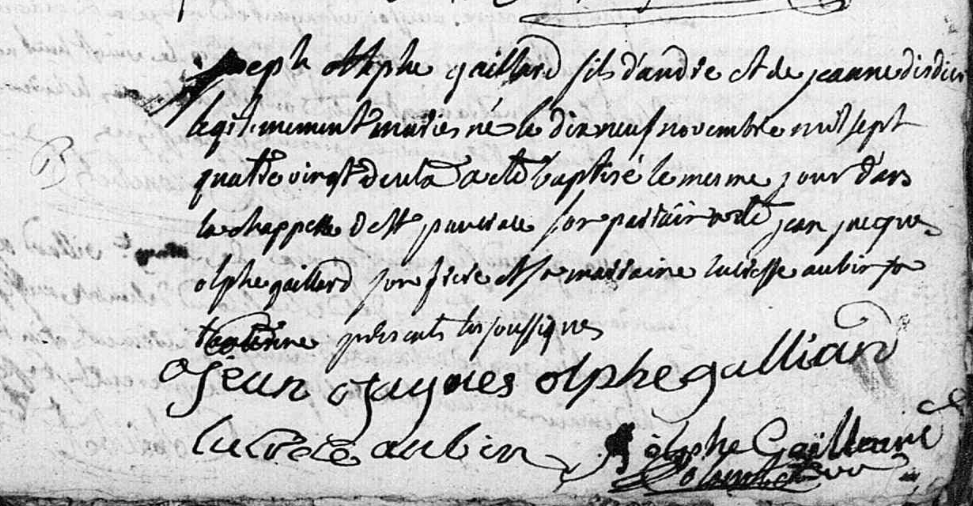 joseph olphe gaillard fils d'andre et de jeanne disdier
legitimement maries né le dix neuf novembre mil sept
quatre vingt deux a eté baptisé le mesme jour dans
la chappelle de st son parrain a eté jean jacques
olphe gaillard son frere et sa marraine lucresse aubin sa
presents les soussignes
jean jaques olphegalliard
lucrece aubin olphe Gaillard